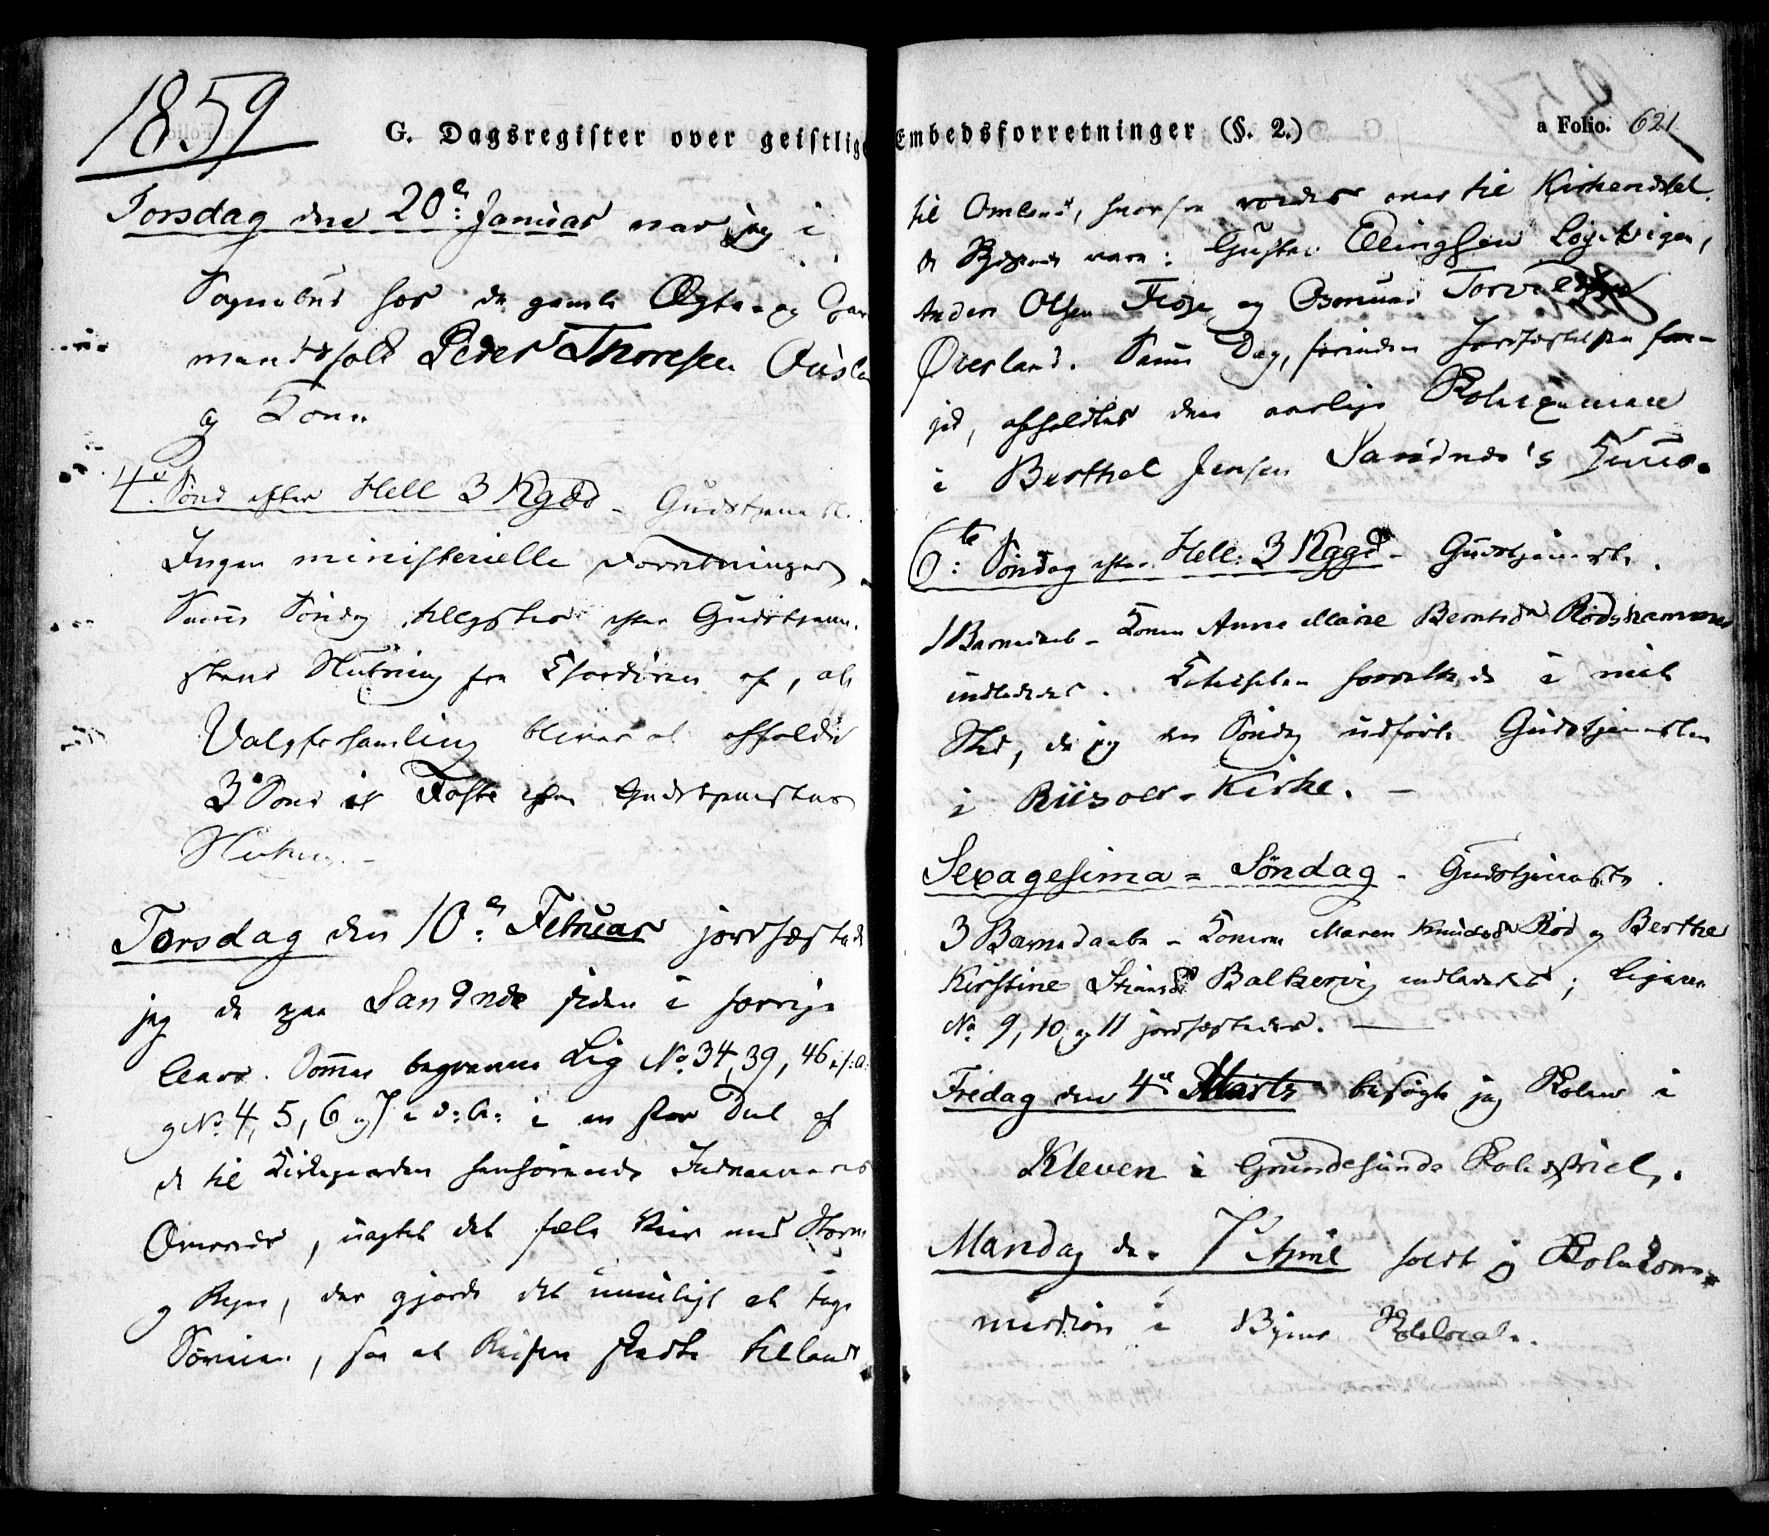 1859
G. Dagsregister over geistlige Embedsforretninger (§. 2.)
a Folio. 621
Torsdag den 20e: Januar var jeg i
Sognebud hos de gamle Ægte- og Gaar
mandsfolk Peder Thoresen Ousla
og Kone
4e. Sønd efter Hell 3 Kgsd - Gudstjeneste.
Ingen ministerielle Forretninger
Samme Søndag tillystes efter Gudstjene-
stens Slutning fra Chordøren af, at
Valgforsamling bliver at afholde
3e Sønd i Faste efter Gudstjenestens
Slutn. -
Torsdag den 10e: Februar jordfæstede
jeg de paa Sandnæs siden i forrige
Aars Sommer begravne Lig No. 34, 39, 46 i f: A:
og No. 4, 5, 6 og 7 i d: A: i en stor Deel af
de til Kirkegaarden henhørende Indvaaneres
Overvær, uagtet det fæle Veir med Storm
og Regn, der gjorde det umuligt at tage
Søveien, saa at Reisen skedte tillands
til Omland, hvorfra roedes over til Kirkeodde
de Rydende vare: Gustav Ellingsen Løgtvigen,
Anders Olsen Fiose, og Osmund Torvildsen
Øverland. Samme Dag, forinden Jordfæstelsen fore-
gik, afholdtes den aarlige Skolexamen
i Berthel Jensen Sandnæs's Huus.
6te: Søndag efter Hell. 3 Kggd - Gudstjeneste.
1 Barnedaab - Konen Anne Marie Berntsd. Rødshammer
indlededes. Kateketen forrettede i mit
Sted, da jeg den Søndag udførte Gudstjenesten
i Riisøer-Kirke. -
Sexagesima = Søndag - Gudstjeneste.
3 Barnedaabe - Konerne Maren Knudsd. Rød og Berthe
Kirstine Stians D. Balkervig indlededes; Ligene
No. 9, 10 og 11 jordfæstedes.
Fredag den 4de Marts besøgte jeg Skolen i
Kleven i Grundesunds Skoledistrict.
Mandag den 7e April holdt jeg Skolecom-
mission i Byens Skolelocale.